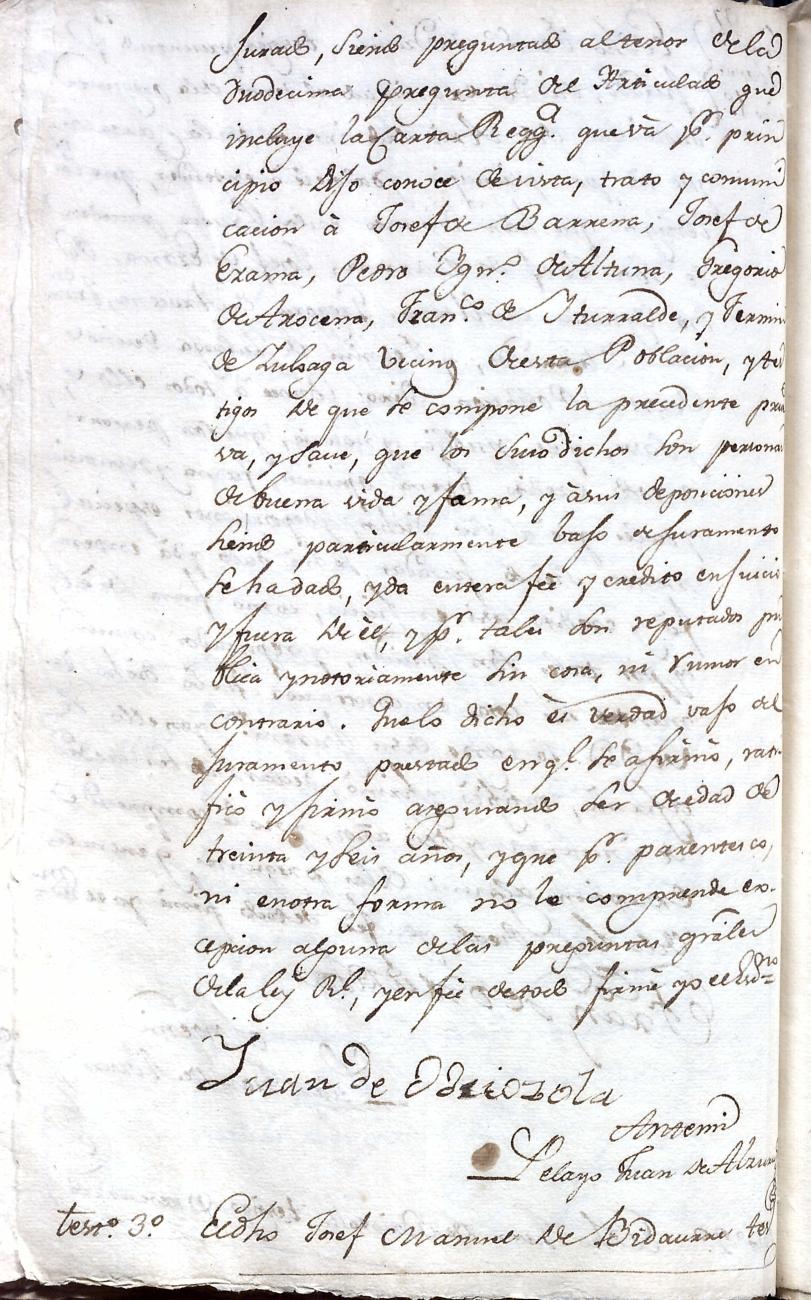 Jurado, siendo preguntado al tenor de la
duodecima pregunta del Articulado que
incluye la Carta Reqq.ª que và p.r prin
cipio dijo conoce de vista, trato y comuni
cacion à Josef de Barrena, Josef de
Erama, Pedro Ygn.º de Altuna, Gregorio
de Arocena, Fran.co de Yturralde, y Fermin
de Zuloaga vecinos de esta Poblacion, y tes
tigos de que se compone la precedente prue
va, y save, que los susodichos son personas
de buena vida y fama, y à sus deposiciones
siendo particularmente bajo de juramento
se ha dado, y da entera feè y credito en juicio
y fuera de èl, y p.r tales son reputados pu
blica y notoriamente sin cosa, ni rumor en
contrario. Que lo dicho es verdad vajo del
juramento prestado en q.l se afirmò, rati
ficò y firmò asegurando ser de edad de
treinta y seis años, y que p.r parentesco,
ni en otra forma no le comprende ex-
cepcion alguna de las preguntas grãles
de la ley Rl., y en feè de todo firmè yo el Esd.no=
Juan de Odriozola
Antemi
Pelayo Juan de Alzu
test.º 3.º Eldho Josef Manuel de Bidaurre tes